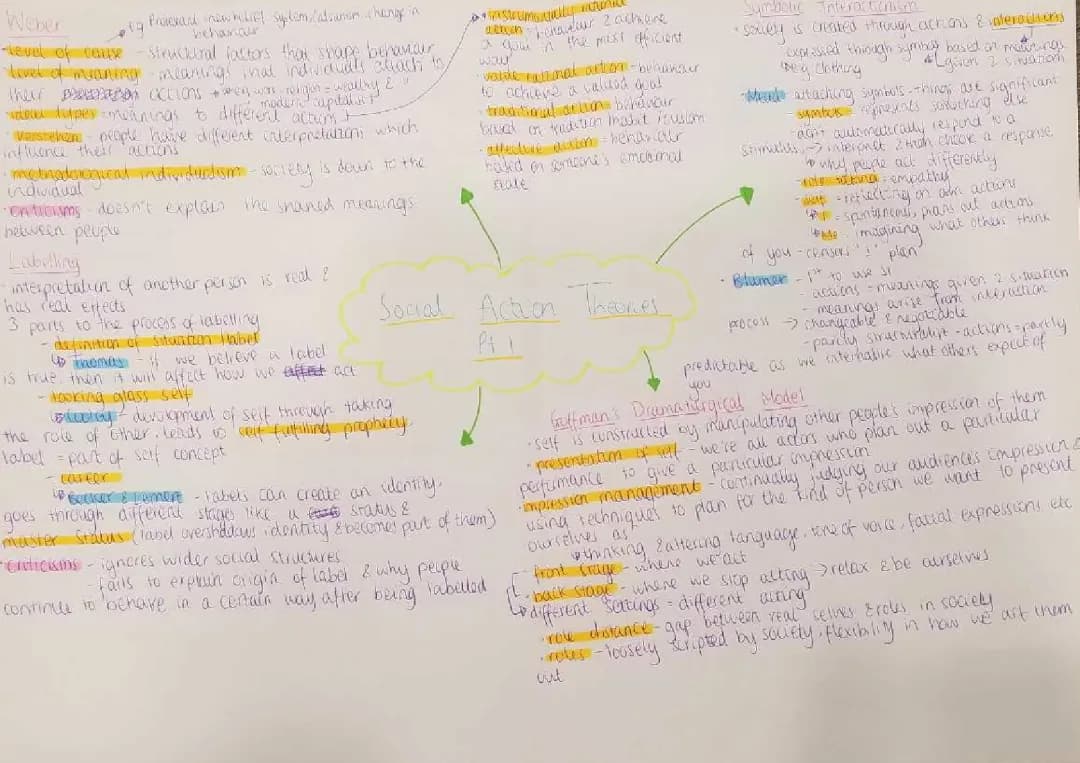 Weber
eg Protestant (new belief system) calvanism change in behaviour
• level of cause - structural factors that shape behaviour
• level of meaning - meanings that individuals attach to
their actions
religion = wealthy &
modern capitalist
• ideal types - meanings to different actions
• verstehen - people have different interpretations which
influence their actions
• methodological individualism - society is down to the
individual
• criticisms - doesn't explain the shared meanings
between people
• instrumentally rational
action - behaviour 2 achieve
a goal in the most efficient
way
• value rational action - behaviour
to achieve a valued goal
• traditional action - behaviour
based on tradition/habit/custom
• affective action - behaviour
based on someone's emotional
state
Symbolic Interactionism
• society is created through actions & interactions
expressed through symbols based on meanings
eg clothing
given 2 situations
• Mead - attaching symbols - things are significant
- symbols - represents something else
- don't automatically respond to a
stimulus → interpret & then choose a response
why people act differently
- role taking = empathy
- self - reflecting on own actions
I - spontaneous, plans out actions
Me - imagining what others think
of you - censors 'I' plan
• Blumer - 1st to use SI
- actions - meanings given 2 situation
- meanings arise from interaction
process → changeable & negotiable
- partly structuralist - actions = partly
predictable as we internalise what others expect of
you
Social Action Theories
Pt 1
Labelling
• interpretation of another person is real &
has real effects
3 parts to the process of labelling
- definition of situation/label
Thomas - if we believe a label
is true, then it will affect how we act
- looking glass self
Cooley - development of self through taking
the role of other. leads to self fulfilling prophecy.
label = part of self concept
- career
Becker & Lemert - labels can create an identity.
goes through different stages like a status &
master status (label overshadows identity & becomes part of them)
• criticisms - ignores wider social structures
- fails to explain origin of label & why people
continue to behave in a certain way after being labelled
Goffman's Dramaturgical Model
• self is constructed by manipulating other people's impression of them
• presentation of self - we're all actors who plan out a particular
performance to give a particular impression
• impression management - continually judging our audience's impression &
using techniques to plan for the kind of person we want to present
ourselves as
thinking & altering language, tone of voice, facial expressions etc
• front stage - where we act
• back stage - where we stop acting → relax & be ourselves
different settings = different acting
• role distance - gap between real selves & roles in society
• roles - loosely scripted by society, flexibility in how we act them
out